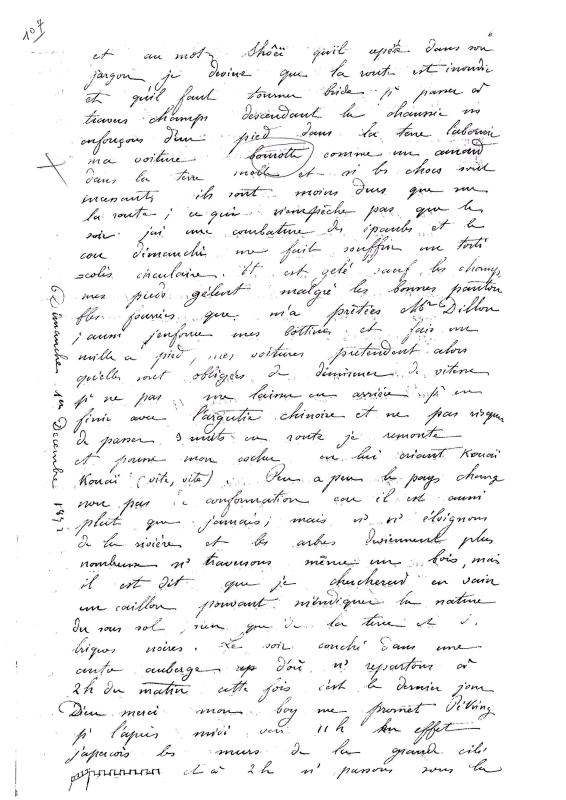 107
et au mot Shôêi qu'il répète dans son
jargon je devine que la route est inondée
et qu'il faut tourner bride pr passer à
travers champs descendant la chaussée ns
enfonçons d'un pied dans la terre labourée
ma voiture comme un canard
dans la terre molle et si les chocs sont
incessants ils sont moins durs que sur
la route ; ce qui n'empêche pas que le
soir j'ai une courbature des épaules et le
cou démanché me fait souffrir un torti
=colis circulaire. Il est gelé sauf les champs
mes pieds gèlent malgré les bonnes pantou
fles fourrées que m'a prêtées Mr Dillon
j'aussi j'enfonce mes bottines et fais un
mille à pied, mes voitures prétendent alors
qu'elles sont obligées de diminuer de vitesse
pr ne pas me laisser en arrière pr en
finir avec l'argutie chinoise et ne pas risquer
de passer 3 nuits en route je remonte
et presse mon cocher en lui criant Kouai
Kouai (vite, vite). Peu à peu le pays change
non pas de conformation car il est aussi
plat que jamais ; mais ns ns éloignons
de la rivière et les arbres deviennent plus
nombreux ns traversons même un bois, mais
il est dit que je chercherai en vain
un caillou pouvant m'indiquer la nature
du sous sol, rien que de la terre et d.
briques noires. Le soir couché dans une
autre auberge d'où ns repartons à
2h du matin cette fois c'est le dernier jour
Dieu merci mon boy me promet Péking
pr l'après midi vers 11h en effet
j'aperçois les murs de la grande cité
et à 2h ns passons sous la
Dimanche 1er Décembre 1872